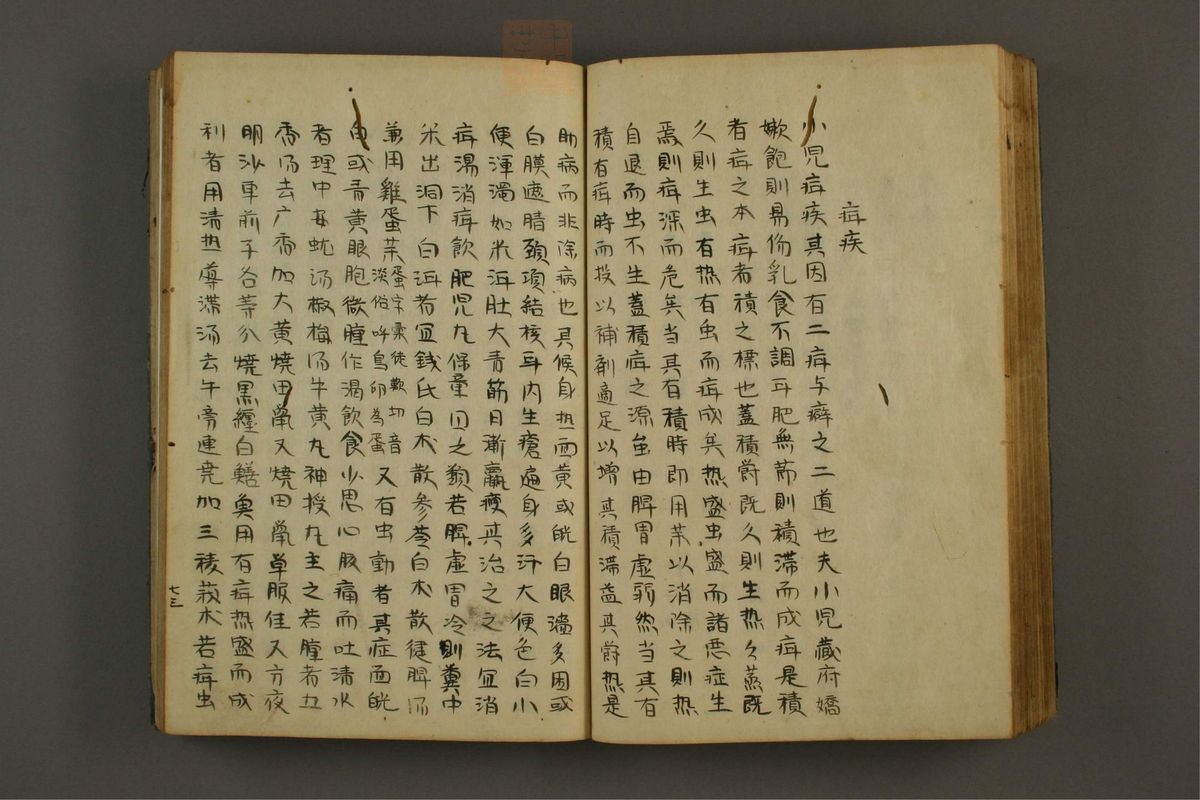 疳疾
小児疳疾其因有二疳与癖之二道也夫小児蔵府嬌
嫩飽則易傷乳食不調耳肥無節則積滞而成疳是積
者疳之本疳者積之標也蓋積欝既久則生热久蒸既
久則生虫有热有虫而疳成矣热盛虫盛而諸悪症生
焉則疳深而危矣当其有積時即用茉以消除之則热
自退而虫不生蓋積疳之源虽由脾胃虚弱然当其有
積有疳時而投以補剤適足以増其積滞益其欝热是
助病而非除病也其候身热面黄或㿠白眼濇多困或
白膜遮睛頚項結核耳内生瘡遍身多汗大便色白小
便渾濁如米泔肚大青筋日漸羸痩其治之之法宜消
疳湯消疳飲肥児丸保童圓之類若脾虚胃冷則糞中
米出洞下白泔者宜銭氏白朮散参苓白朮散健脾湯
兼用雞蛋茉蛋字彙徒歎切音
淡俗呼鳥卵為蛋又有虫動者其症面㿠
白或青黄眼胞微腫作渇飲食少思心腹痛而吐清水
者理中安蚘湯椒梅湯牛黄丸神授丸主之若腫者五
香湯去广香加大黄焼田螺又焼田螺単服佳又方夜
明沙車前子各等分焼黒纏白鱔魚用有疳热盛而成
利者用清热導滞湯去牛旁連壳加三稜莪朮若疳虫
七三